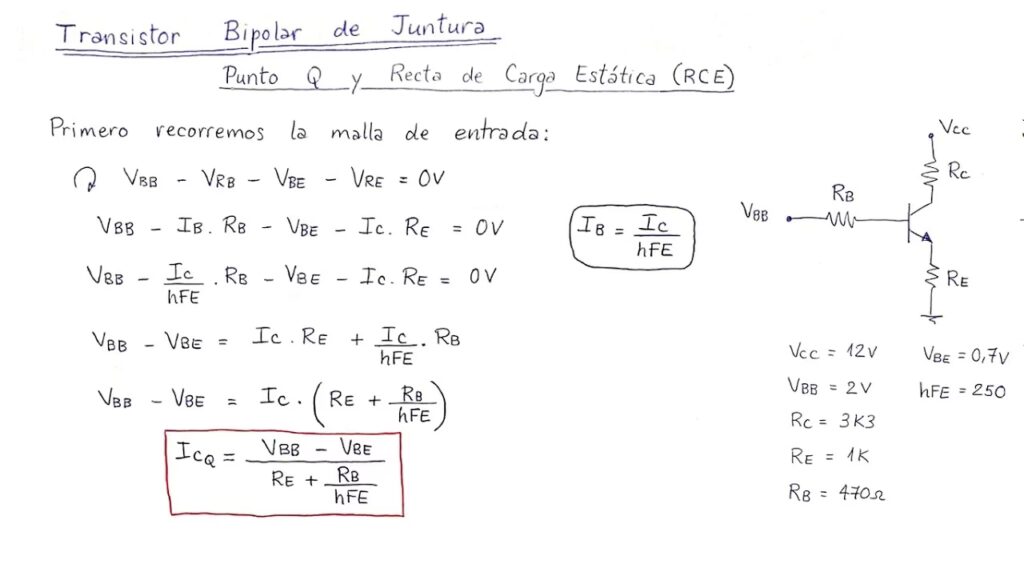 Transistor Bipolar de Juntura
Punto Q y Recta de Carga Estática (RCE)
Primero recorremos la malla de entrada:
VBB - VRB - VBE - VRE = 0V
VBB - IB. RB - VBE - Ic. RE = 0V
VBB - Ic/hFE . RB - VBE - Ic. RE = 0V
VBB - VBE = Ic . RE + Ic/hFE . RB
VBB - VBE = Ic . (RE + RB/hFE)
IcQ = (VBB - VBE)/(RE + RB/hFE)
IB = Ic/hFE
Vcc
Rc
RB
VBB
RE
Vcc = 12V
VBE = 0,7V
VBB = 2V
hFE = 250
Rc = 3K3
RE = 1K
RB = 470Ω